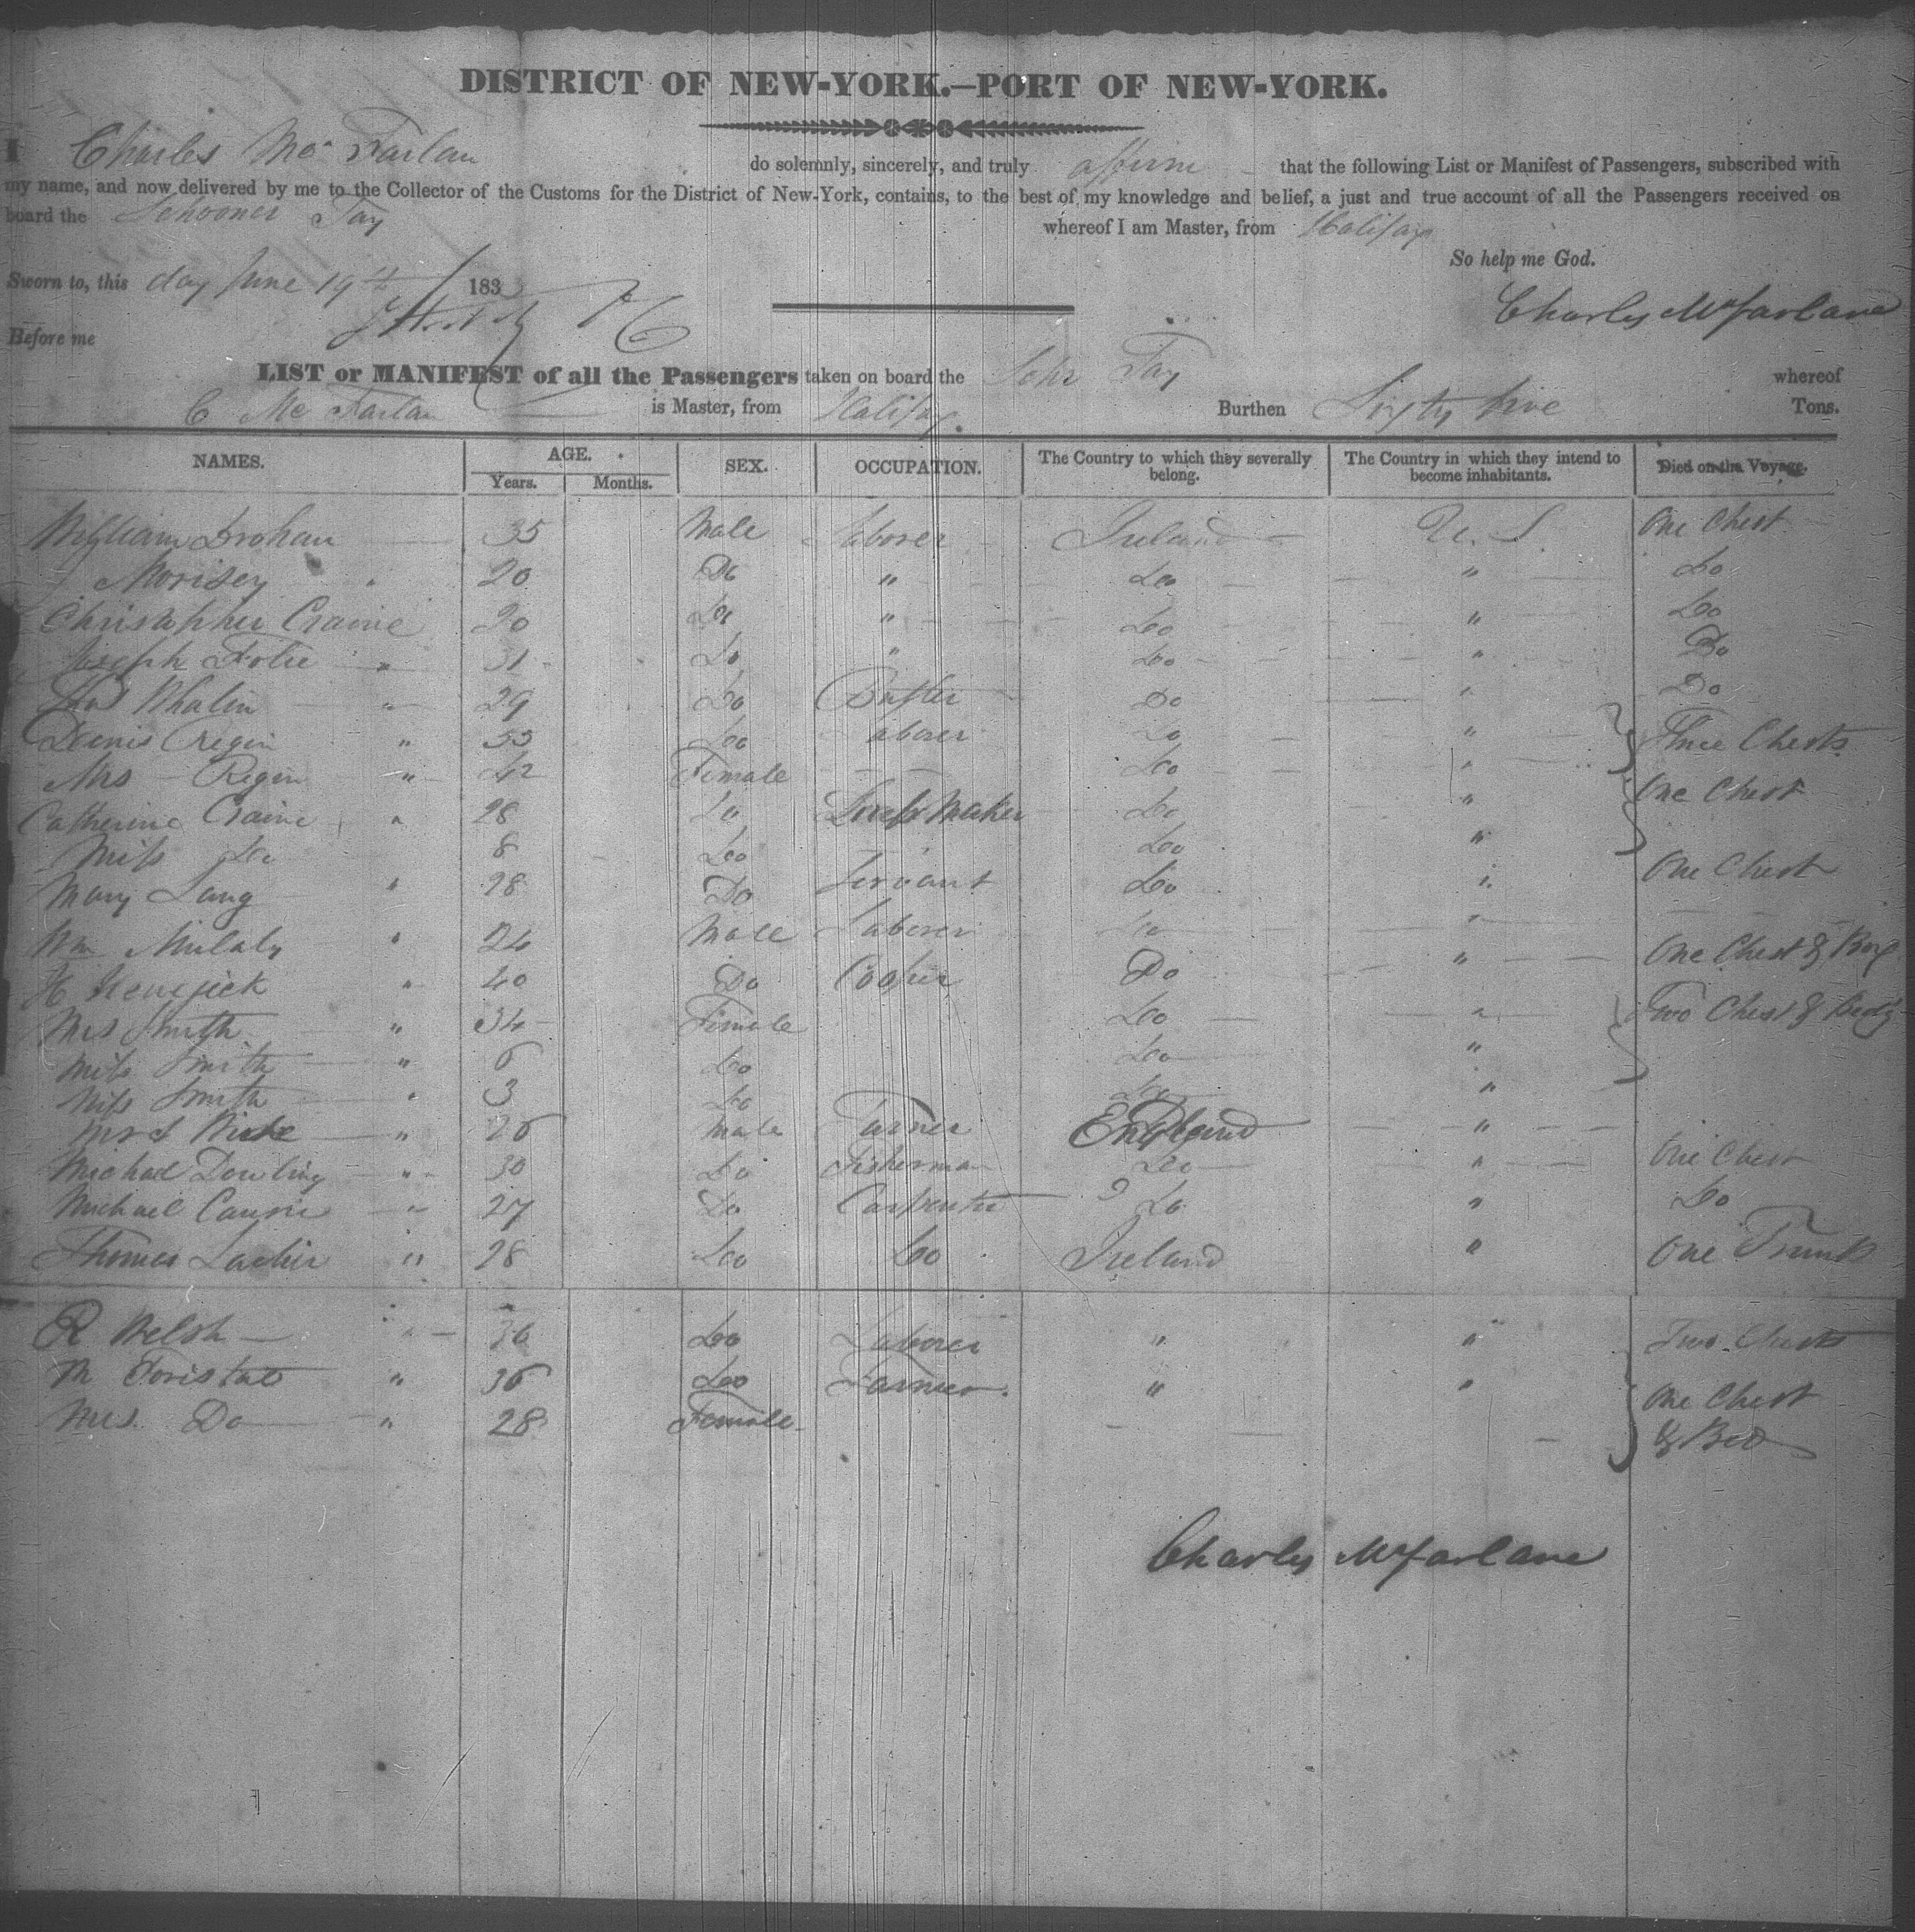 DISTRICT OF NEW-YORK.—PORT OF NEW-YORK.
I Charles Mc Farlan do solemnly, sincerely, and truly affirm that the following List or Manifest of Passengers, subscribed with
my name, and now delivered by me to the Collector of the Customs for the District of New-York, contains, to the best of my knowledge and belief, a just and true account of all the Passengers received on
board the Schooner whereof I am Master, from Halifax
So help me God.
Sworn to, this day June 19th 183
Charles McFarlane
Before me
LIST or MANIFEST of all the Passengers taken on board the Schr whereof
C Mc Farlan is Master, from Halifax. Burthen Sixty five Tons.
NAMES. AGE. SEX. OCCUPATION. The Country to which they severally belong. The Country in which they intend to become inhabitants. Died on the Voyage.
Years. Months.
William Drohan 35 Male Laborer Ireland U. S. One Chest
Morisey " 20 Do " Do " Do
Christopher Craine 20 Do " Do " Do
Joseph Folie " 31 Do " Do " Do
Thos Whalin " 29 Do Do " Do
Denis Regin " 33 Do Laborer Do " Three Chests
Mrs Regin " 42 Female Do "
Catherine Craine " 28 Do Dress Maker Do " One Chest
Miss Do 8 Do Do "
Mary Lang " 28 Do Servant Do " One Chest
Wm Mulaly " 24 Male Laborer Do "
H " 40 Do Cooper Do " One Chest & Box
Mrs Smith " 34 Female Do " Two Chest &
Miss Smith " 6 Do Do "
Miss Smith " 3 Do Do "
" 26 Male England "
Michael Dowling " 30 Do Fisherman Do " One Chest
Michael " 27 Do Carpenter Do " Do
Thomas " 28 Do Do Ireland " One Trunk
R Welsh " 36 Do Laborer " " Two Chests
M " 36 Do Farmer. " " One Chest
Mrs. Do " 28 Female & Bed
Charles McFarlane